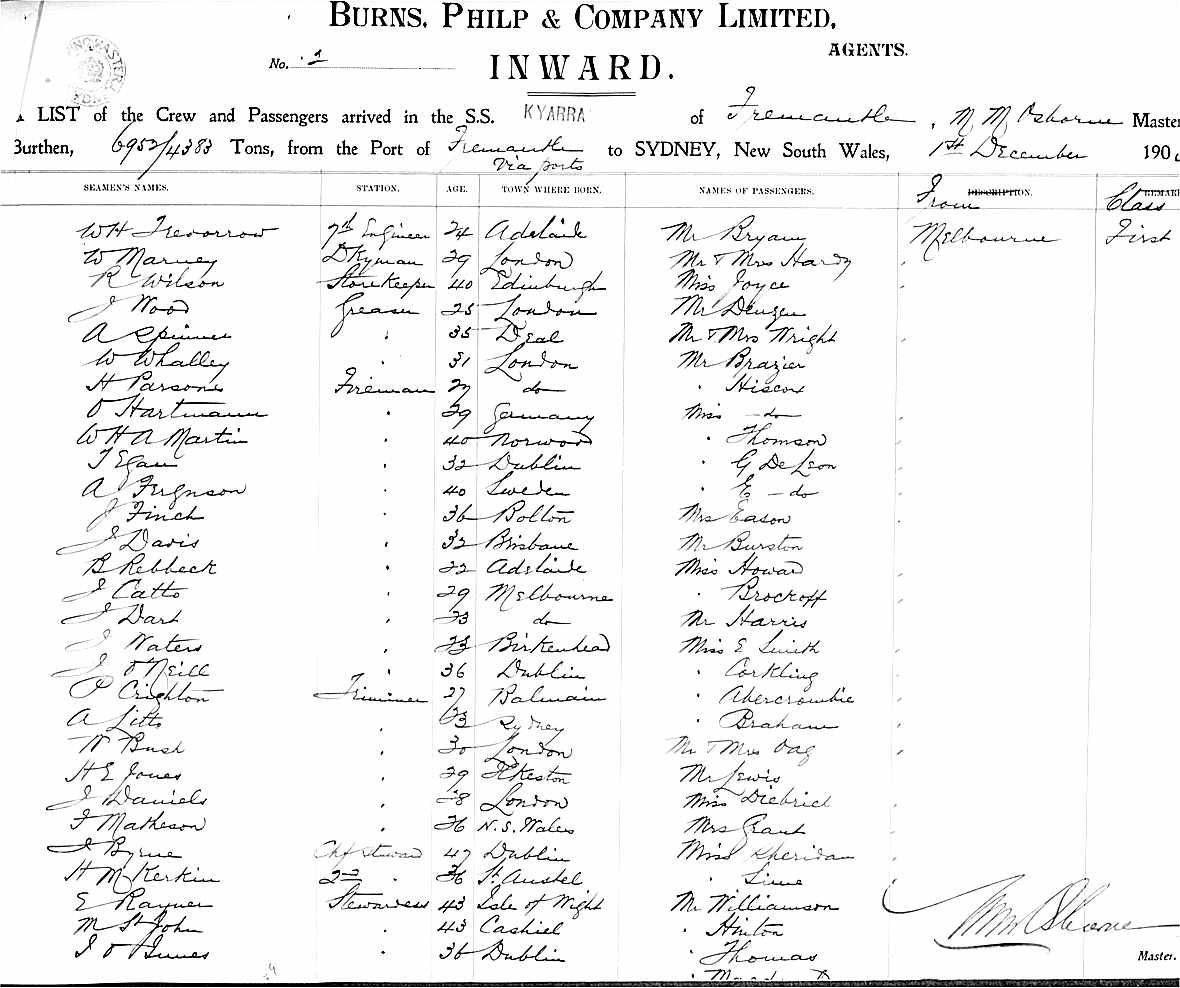 BURNS, PHILP & COMPANY LIMITED,
AGENTS.
No. 2
INWARD.
LIST of the Crew and Passengers arrived in the S.S. KYARRA of Fremantle, Master
Burthen, 6952/4383 Tons, from the Port of Fremantle to SYDNEY, New South Wales, 1st December 190
Via ports
SEAMEN'S NAMES. STATION. AGE. TOWN WHERE BORN. NAMES OF PASSENGERS. DESCRIPTION. REMARK
From Class
W H Trevorrow 7th Engineer 24 Adelaide Mr Bryam Melbourne First
W Marney Dkyman 29 London Mr & Mrs Hardy
R Wilson Storekeeper 40 Edinburgh Miss Joyce
J Wood Greaser 25 London Mr
A Spinner " 35 Deal Mr & Mrs Wright
W Whalley " 31 London Mr Brazier
H Parsons Fireman 27 do " Hiscox
O Hartmann " 29 Germany Miss - do
W H A Martin " 40 Norwood " Thomson
T Egan " 32 Dublin " G De Leon
A Fergnson " 40 Sweden " E - do
J Finch " 36 Bolton Mrs Eason
J Davis " 32 Brisbane Mr Burston
B Rebbeck " 22 Adelaide Miss Howard
J Catto " 29 Melbourne " Brockoff
J Dart " 23 do Mr Harris
J Waters " 23 Birkenhead Miss E Smith
J O'Neill " 36 Dublin " Corkling
P Crighton Trimmer 27 Balmain " Abercrombie
A Litto " 23 Sydney " Braham
W Bush " 30 London Mr & Mrs Oag
H E Jones " 29 Ilkeston Mr Lewis
J Daniels " 28 London Miss Diebrich
F Matheson " 26 N.S. Wales Mrs Grant
J Byrne Chf Steward 47 Dublin Miss Sheridan
H McKerkin 2nd " 36 St Austel " Lime
E Rayner Stewardess 43 Isle of Wight Mr Williamson
M St John " 43 Cashiel " Hinton
J O " 36 Dublin " Thomas
Master.